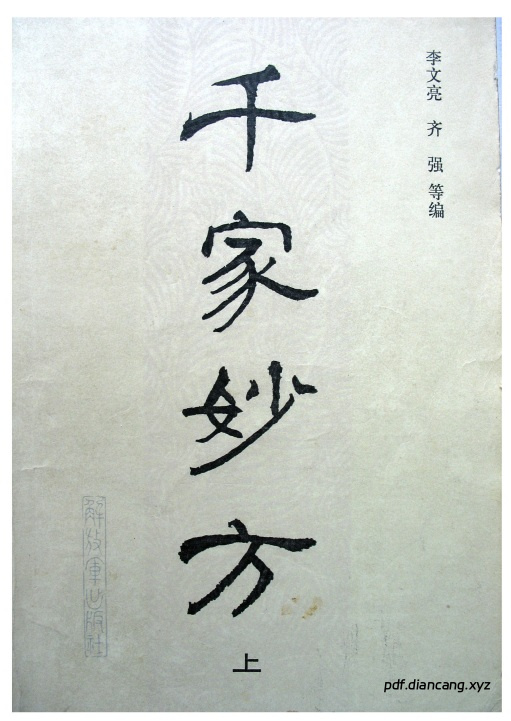 李文亮 齐 强 等编
千家妙方
上
解放军出版社
pdf.diancang.xyz